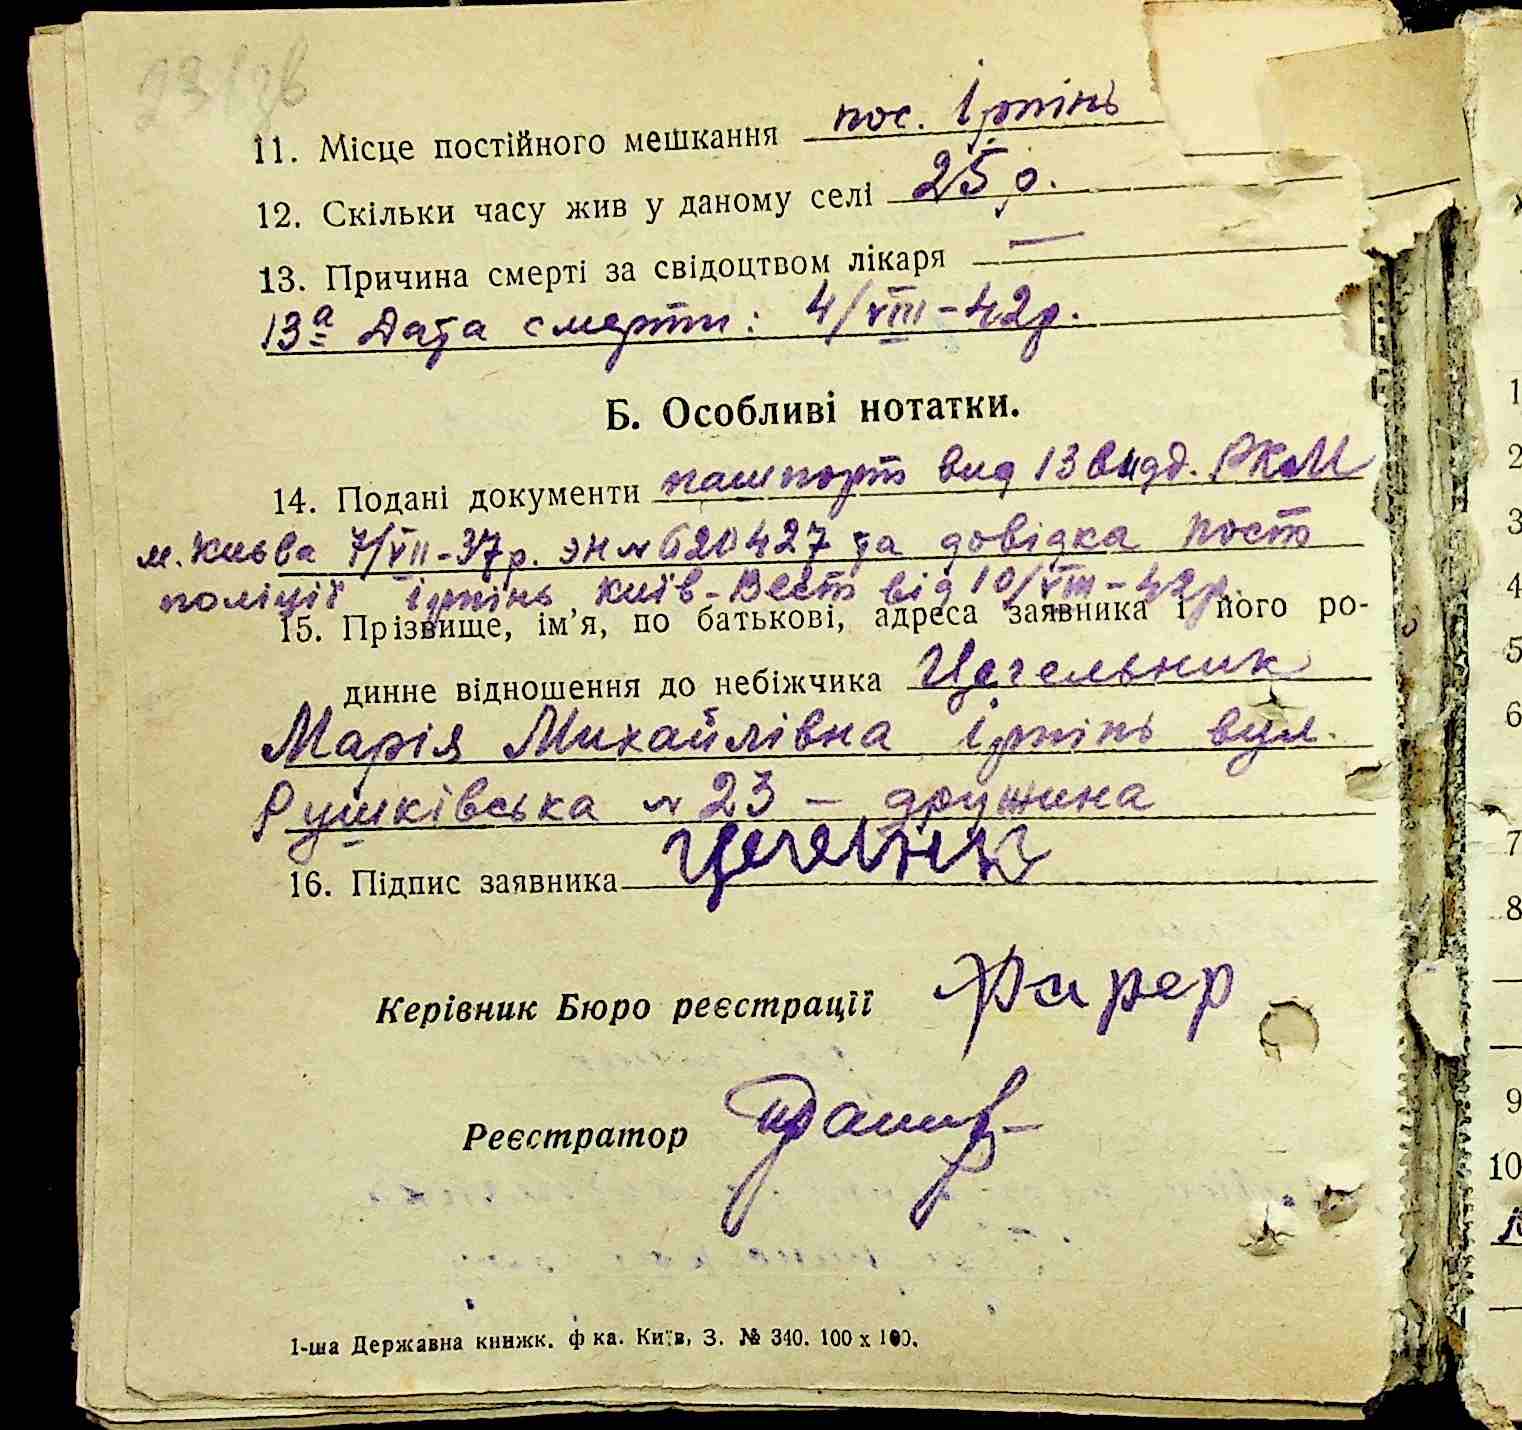 11. Місце постійного мешкання пос. Ірпінь
12. Скільки часу жив у даному селі 25 р.
13. Причина смерті за свідоцтвом лікаря —
13а Дата смерти: 4/VIII-42р.
Б. Особливі нотатки.
14. Подані документи пашпорт вид 13 видд. РКМ
м. Київа 7/VII-37р. ЭН № 620427 та довідка Пост
поліції Ірпінь Київ-Вест від 10/VIII-42р.
15. Прізвище, ім'я, по батькові, адреса заявника і його ро-
динне відношення до небіжчика Цегельник
Марія Михайлівна Ірпінь вул.
Рушківська № 23 – дружина
16. Підпис заявника
Керівник Бюро реєстрації
Реєстратор
1-ша Державна книжк. ф ка. Київ, З. № 340. 100 х 100.
1
2
3
4
5
6
7
8
9
10